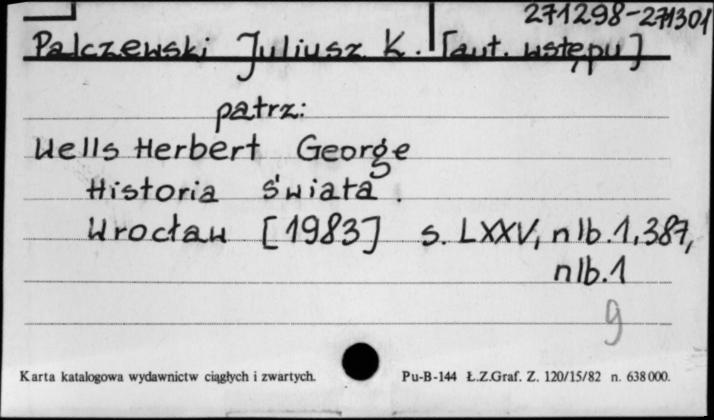 271298-271301
Palczewski Juliusz K. [aut. wstępu]
patrz:
Wells Herbert George
Historia świata.
Wrocław [1983] s. LXXV, nlb.1, 387,
nlb.1
9
Karta katalogowa wydawnictw ciągłych i zwartych. Pu-B-144 Ł.Z.Graf. Z. 120/15/82 n. 638000.